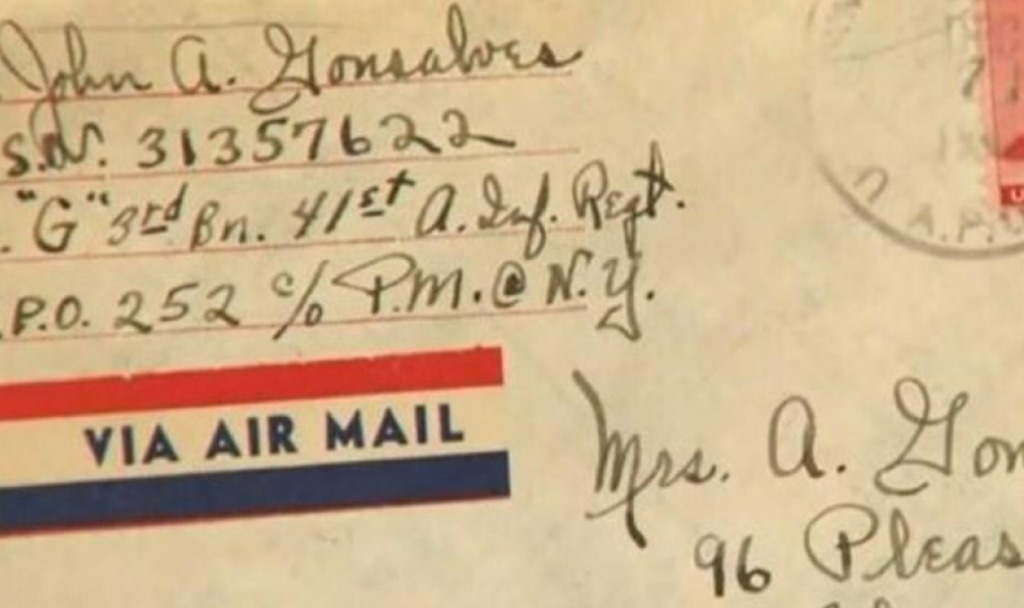 John A. Gonsalves
S.N. 31357622
"G" 3rd Bn. 41st A. Inf. Regt.
P.O. 252 c/o P.M. @ N.Y.
VIA AIR MAIL
Mrs. A. Gon
96 Pleas
A.P.